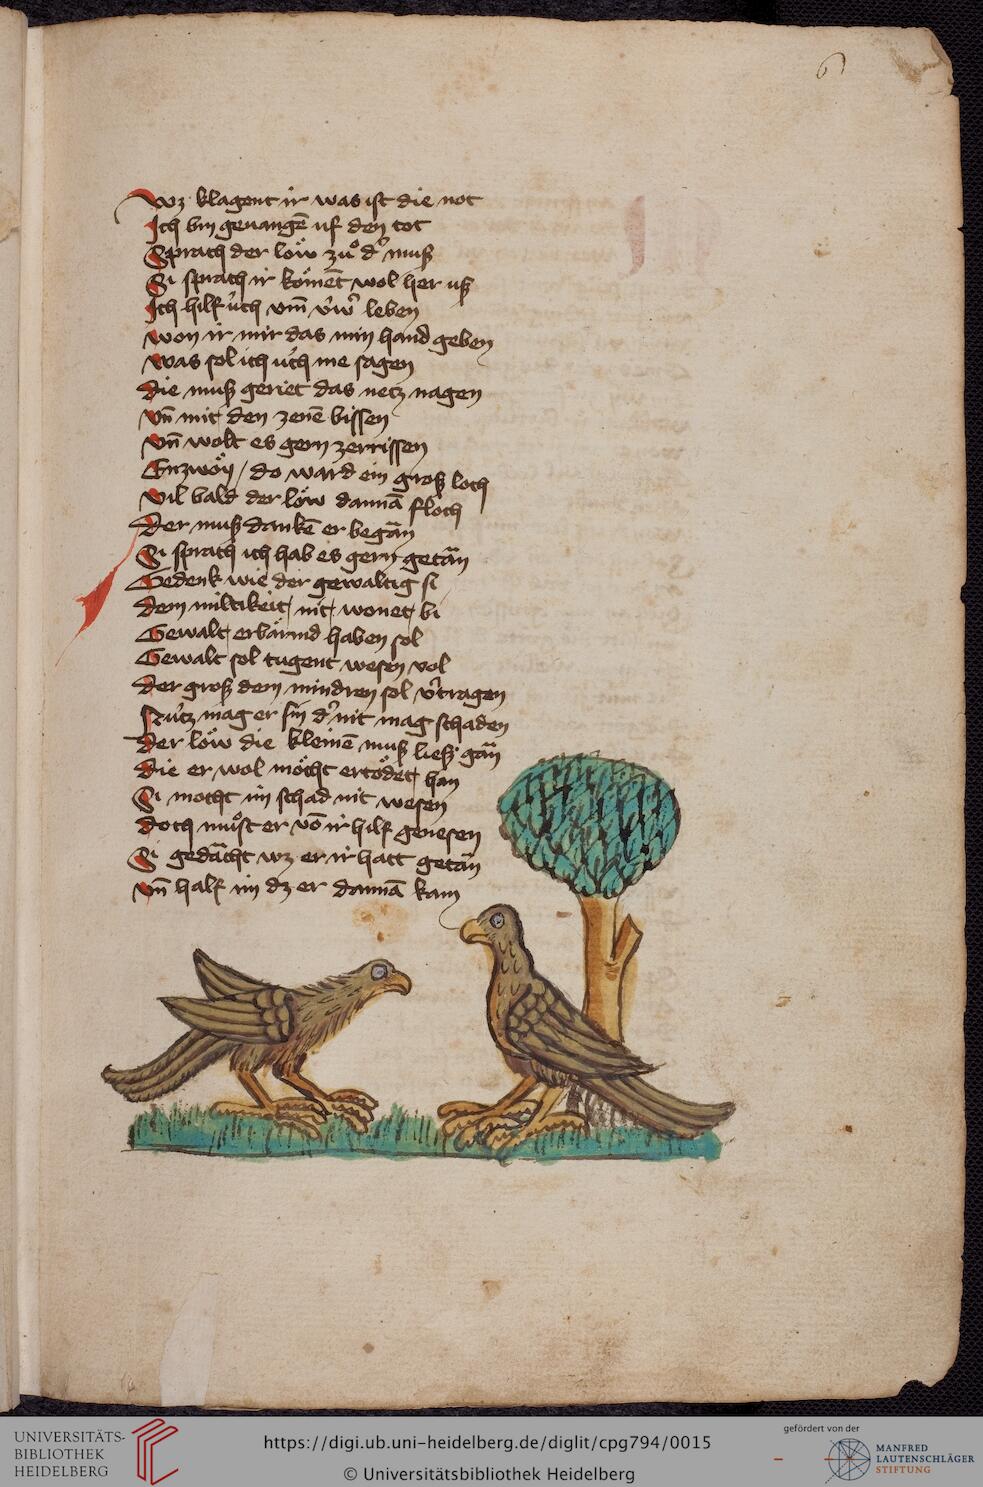 6
wz klagent ir was ist die not
Ich bin geuangē uf den tot
Sprach der löw zuͦ d' mus
Si sprach ir komēt wol her us
Ich hilf üch vm̄ v́w' leben
won ir mir das min hand geben
was sol ich üch me sagen
die mus geriet das netz nagen
vn̄ mit den zenē bissen
vn̄ wolt es gern zerrissen
Enzwöy / do ward ein gros loch
vil bald der löw dannā floch
Der mus dankē er began
Si sprach ich hab es gern getān
Gedenk wie der gewaltig si
dem miltikeit nit wonet bi
Gewalt erbärmd haben sol
Gewalt sol tugent wesen vol
der gros dem mindren sol v'tragen
Nütz mag er sin d' nit mag schaden
der löw die kleinē mus lies gān
die er wol möcht ertödet han
Si mocht im schad nit wesen
doch muͦst er vō ir hilf genesen
Si gedācht wz er ir hatt getān
vn̄ half im dz er dannā kam
UNIVERSITÄTS-
BIBLIOTHEK
HEIDELBERG
https://digi.ub.uni-heidelberg.de/diglit/cpg794/0015
© Universitätsbibliothek Heidelberg
gefördert von der
MANFRED
LAUTENSCHLÄGER
STIFTUNG